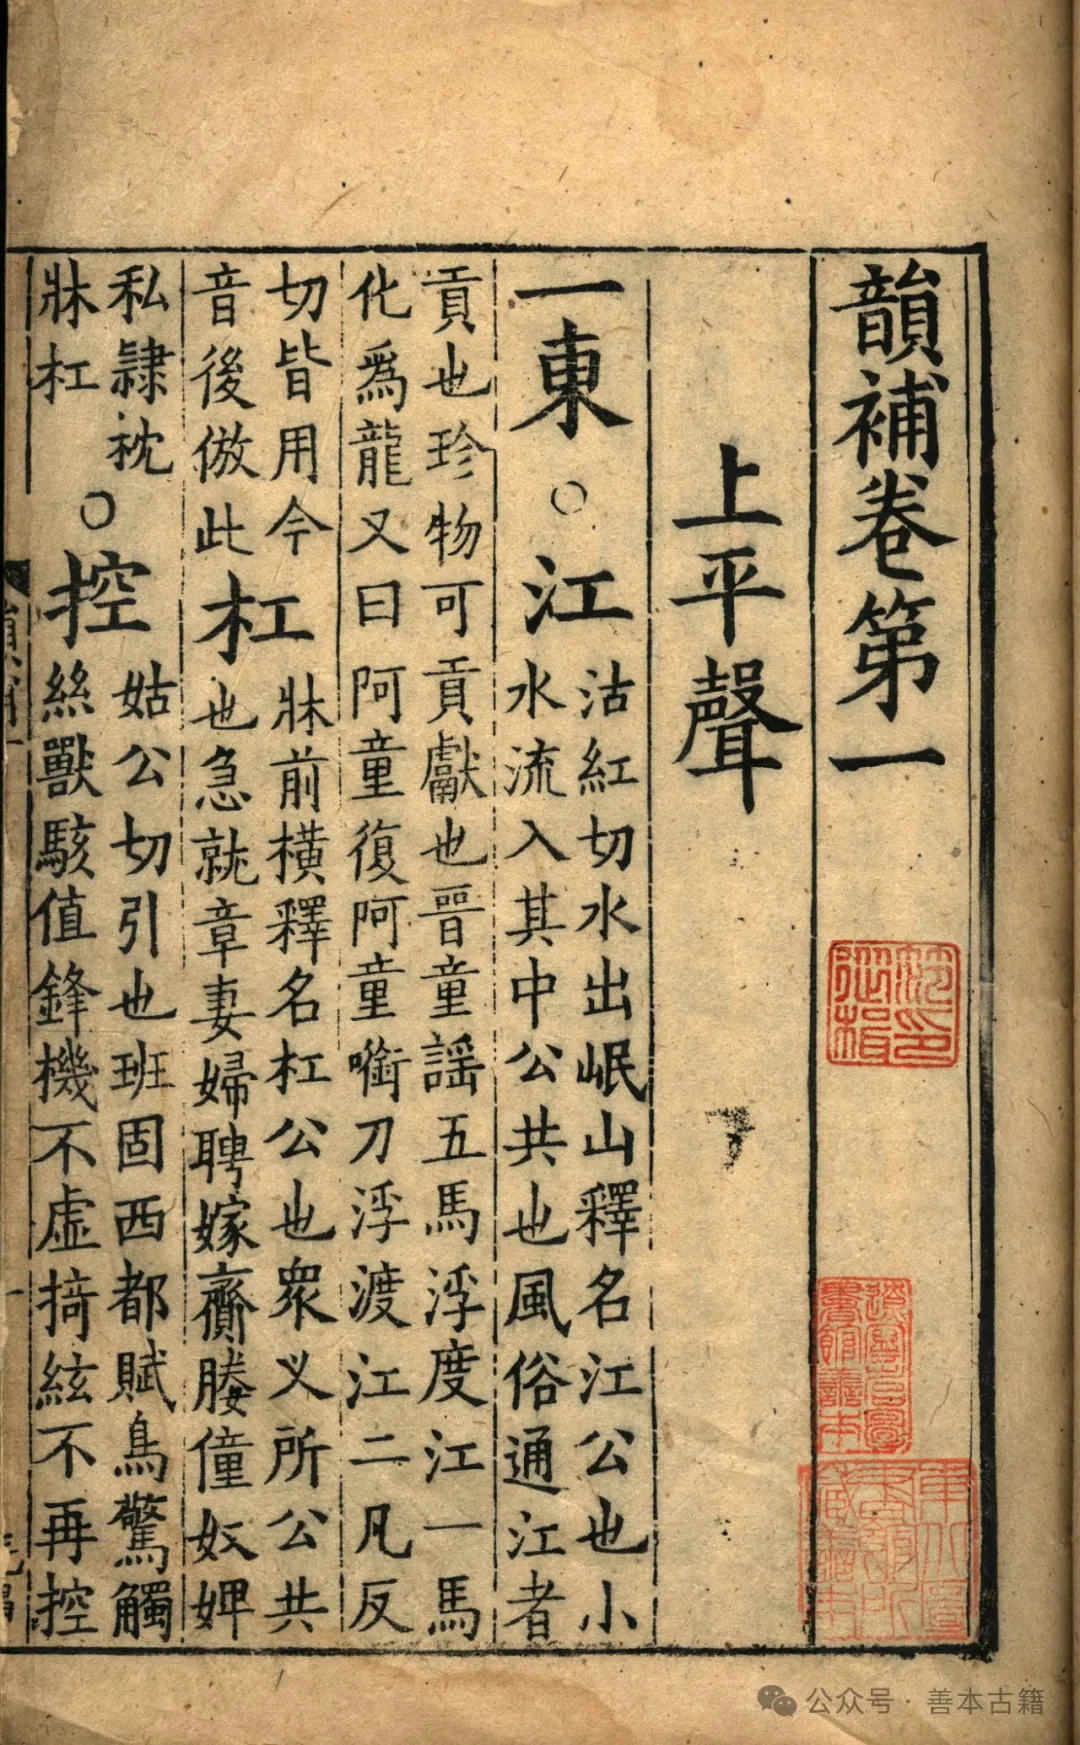 韻補卷第一
上平聲
一東○江
沽紅切水出岷山釋名江公也小
水流入其中公共也風俗通江者
貢也珍物可貢獻也晉童謡五馬浮度江一馬
化爲龍又曰阿童復阿童㗸刀浮渡江二凡反
切皆用今
音後倣此
杠
牀前橫釋名杠公也衆义所公共
也急就章妻婦聘嫁齎媵僮奴婢
私隷枕
牀杠
○控
姑公切引也班固西都賦鳥驚觸
絲獸駭值鋒機不虛掎絃不再控
公众号·善本古籍